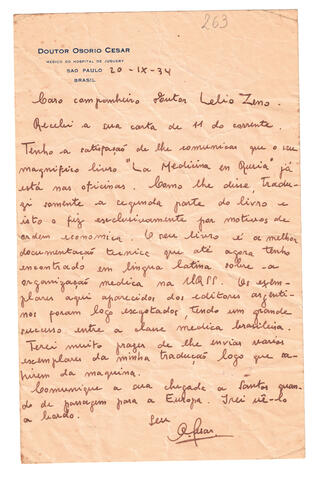 263
DOUTOR OSORIO CESAR
MEDICO DO HOSPITAL DE JUQUERY
SAO PAULO 20-IX-34
BRASIL
Caro companheiro doutor Lelio Zeno.
Recebi a sua carta de 11 do corrente.
Tenho a satisfação de lhe comunicar que o seu
magnifico livro "La Medicina en Rusia" já
está nas oficinas. Como lhe disse, tradu-
zi somente a segunda parte do livro e
isto o fiz exclusivamente por motivos de
ordem economica. O seu livro é a melhor
documentação tecnica que até agora tenho
encontrado em lingua latina sobre a
organização medica na URSS. Os exem-
plares aqui aparecidos dos editores argenti-
nos foram logo exgotados, tendo um grande
sucesso entre a classe medica brasileira.
Terei muito prazer de lhe enviar varios
exemplares da minha tradução logo que sa-
hirem da maquina.
Comunique a sua chegada a Santos quan-
do de passagem para a Europa. Irei vê-lo
a bordo.
Seu
O. Cesar